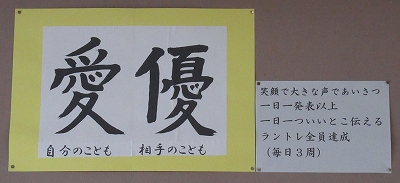 愛優
自分のことも 相手のことも
笑顔で大きな声であいさつ
一日一発表以上
一日一ついいとこ伝える
ラントレ全員達成
（毎日３周）